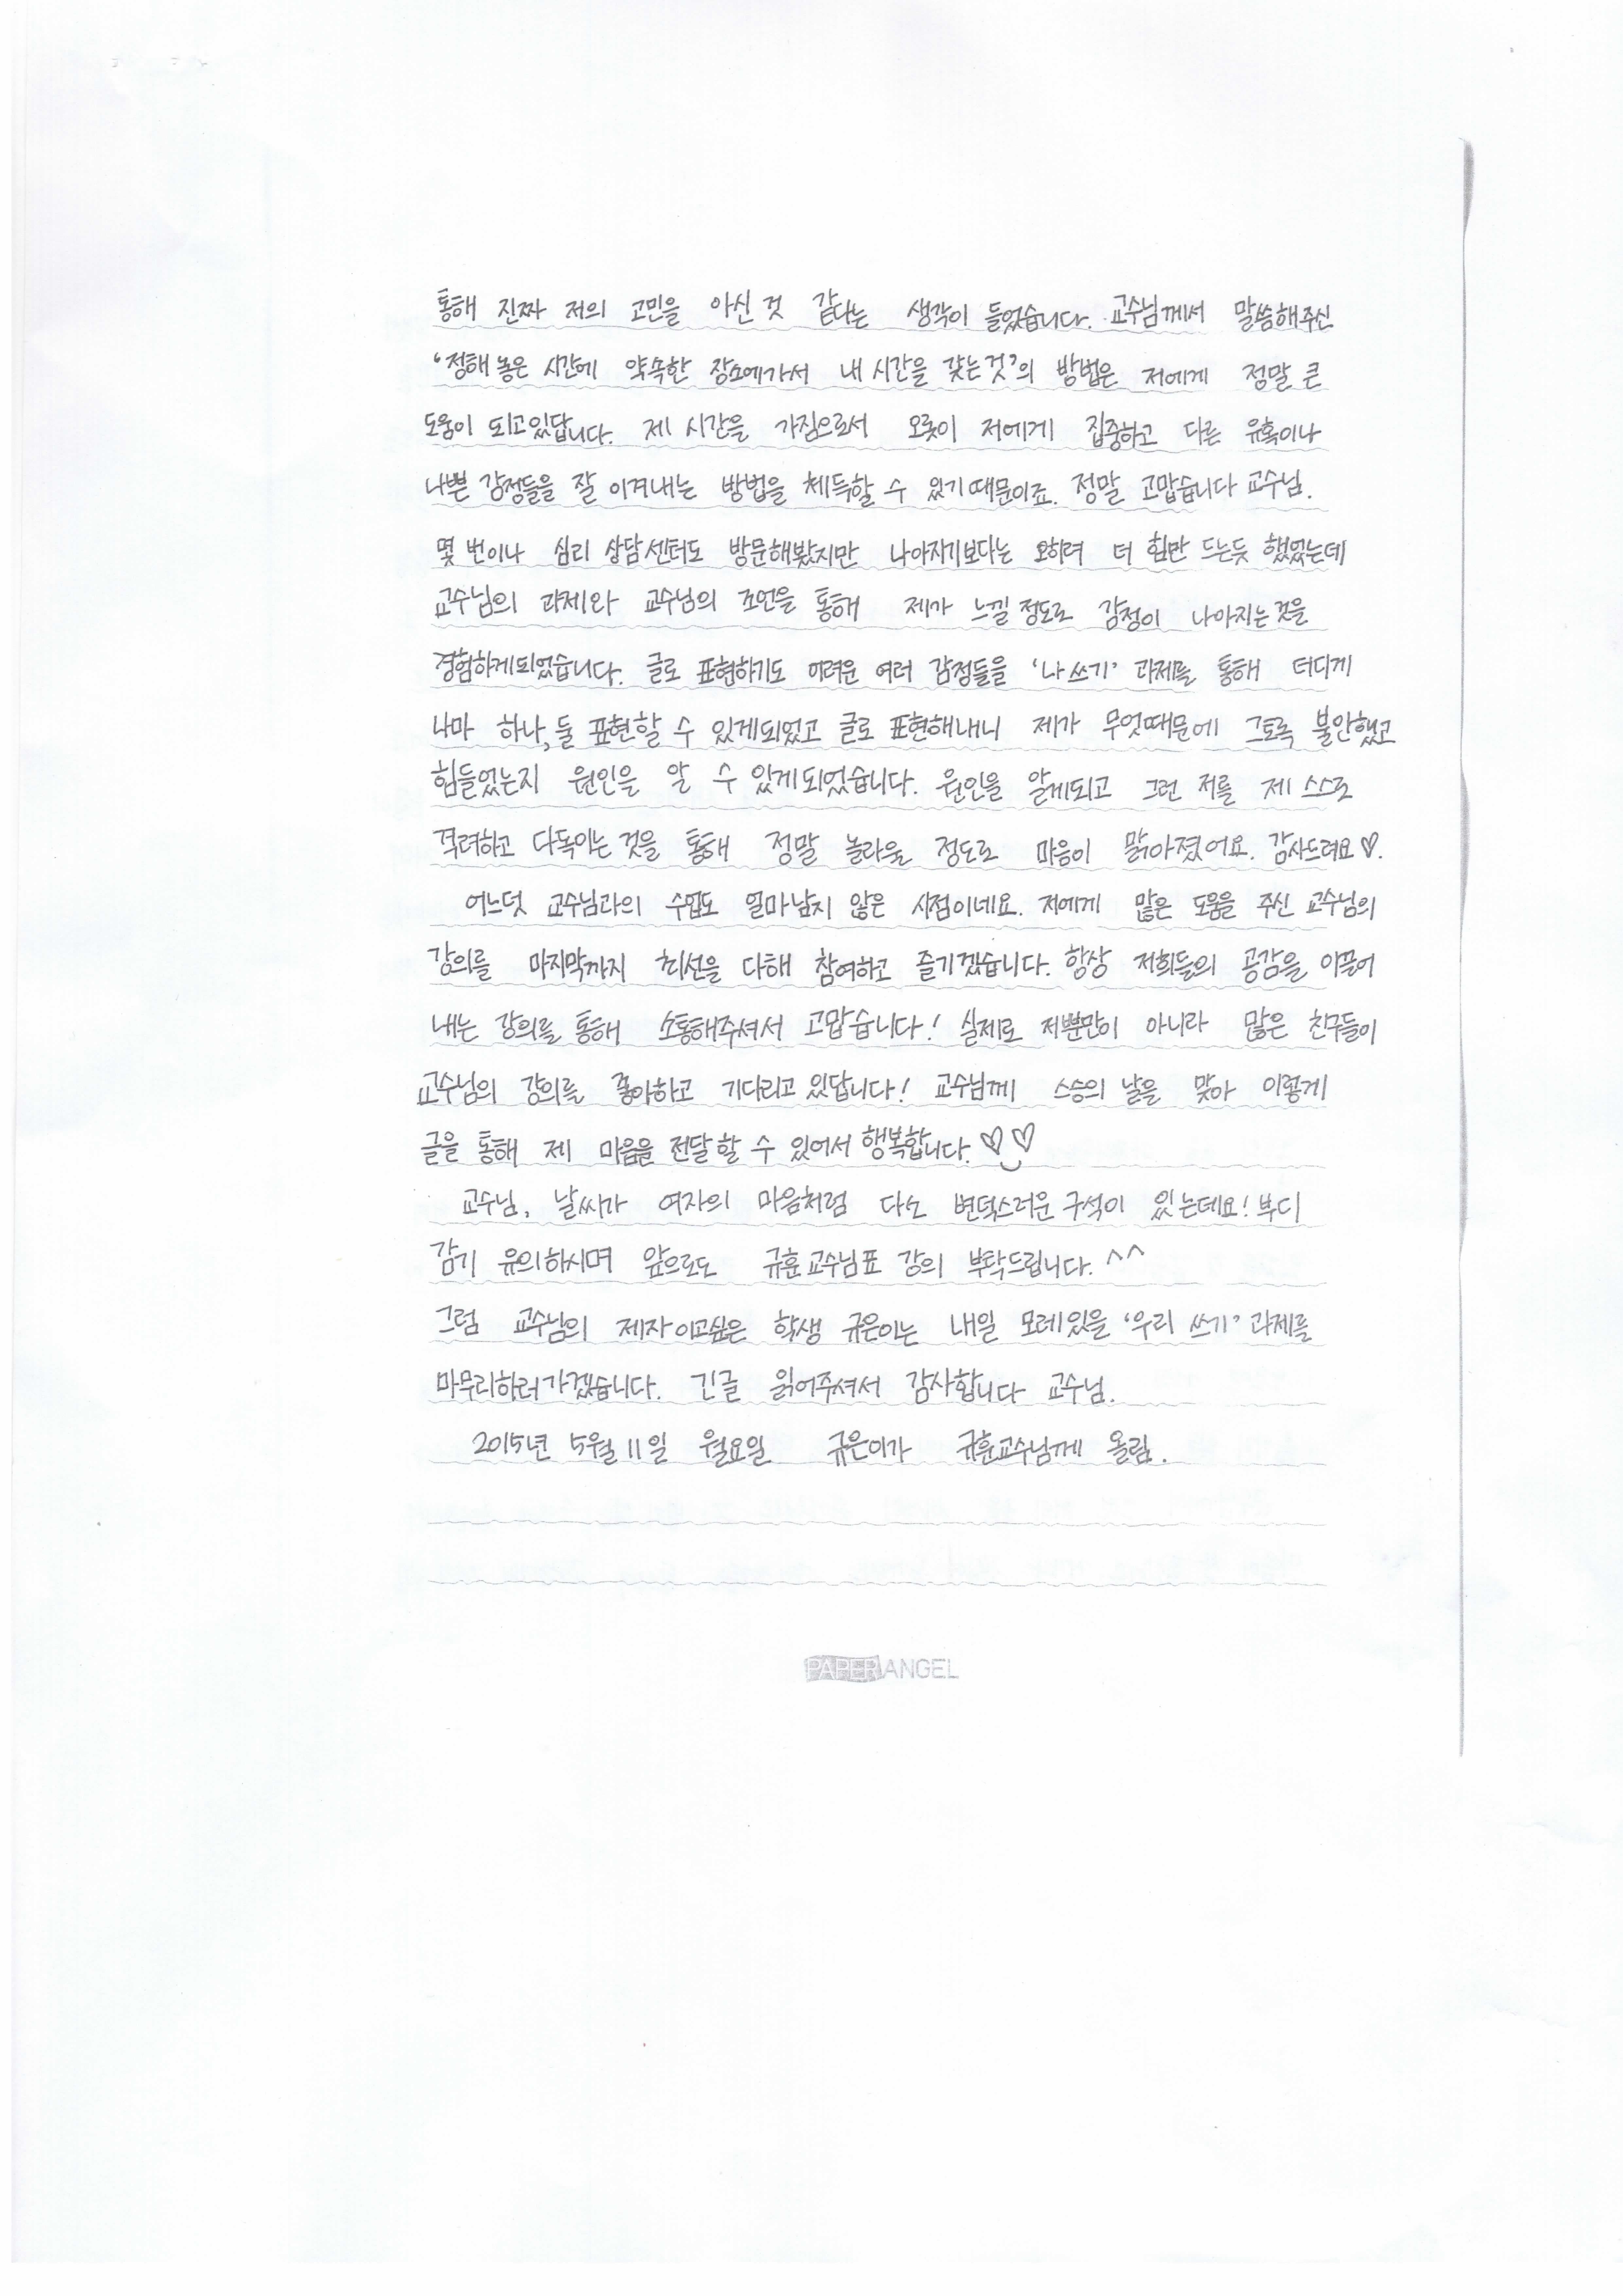 통해 진짜 저의 고민을 아신 것 같다는 생각이 들었습니다. 교수님께서 말씀해주신
'정해 놓은 시간에 약속한 장소에가서 내 시간을 갖는것'의 방법은 저에게 정말 큰
도움이 되고있답니다. 제 시간을 가짐으로서 오롯이 저에게 집중하고 다른 유혹이나
나쁜 감정들을 잘 이겨내는 방법을 체득할 수 있기때문이죠. 정말 고맙습니다 교수님.
몇 번이나 심리 상담센터도 방문해봤지만 나아지기보다는 오히려 더 힘만 드는듯 했었는데
교수님의 과제와 교수님의 조언을 통해 제가 느낄정도로 감정이 나아지는것을
경험하게되었습니다. 글로 표현하기도 어려운 여러 감정들을 '나 쓰기' 과제를 통해 더디게
나마 하나, 둘 표현할 수 있게되었고 글로 표현해내니 제가 무엇때문에 그토록 불안했고
힘들었는지 원인을 알 수 있게되었습니다. 원인을 알게되고 그런 저를 제 스스로
격려하고 다독이는 것을 통해 정말 놀라울 정도로 마음이 맑아졌어요. 감사드려요♡.
어느덧 교수님과의 수업도 얼마남지 않은 시점이네요. 저에게 많은 도움을 주신 교수님의
강의를 마지막까지 최선을 다해 참여하고 즐기겠습니다. 항상 저희들의 공감을 이끌어
내는 강의를 통해 소통해주셔서 고맙습니다! 실제로 저뿐만이 아니라 많은 친구들이
교수님의 강의를 좋아하고 기다리고 있답니다! 교수님께 스승의 날을 맞아 이렇게
글을 통해 제 마음을 전달할 수 있어서 행복합니다. ♡♡
교수님, 날씨가 여자의 마음처럼 다소 변덕스러운 구석이 있는데요! 부디
감기 유의하시며 앞으로도 규훈교수님표 강의 부탁드립니다. ^^
그럼 교수님의 제자이고싶은 학생 규은이는 내일 모레있을 '우리 쓰기' 과제를
마무리하러가겠습니다. 긴글 읽어주셔서 감사합니다 교수님.
2015년 5월 11일 월요일 규은이가 규훈교수님께 올림.
PAPER ANGEL